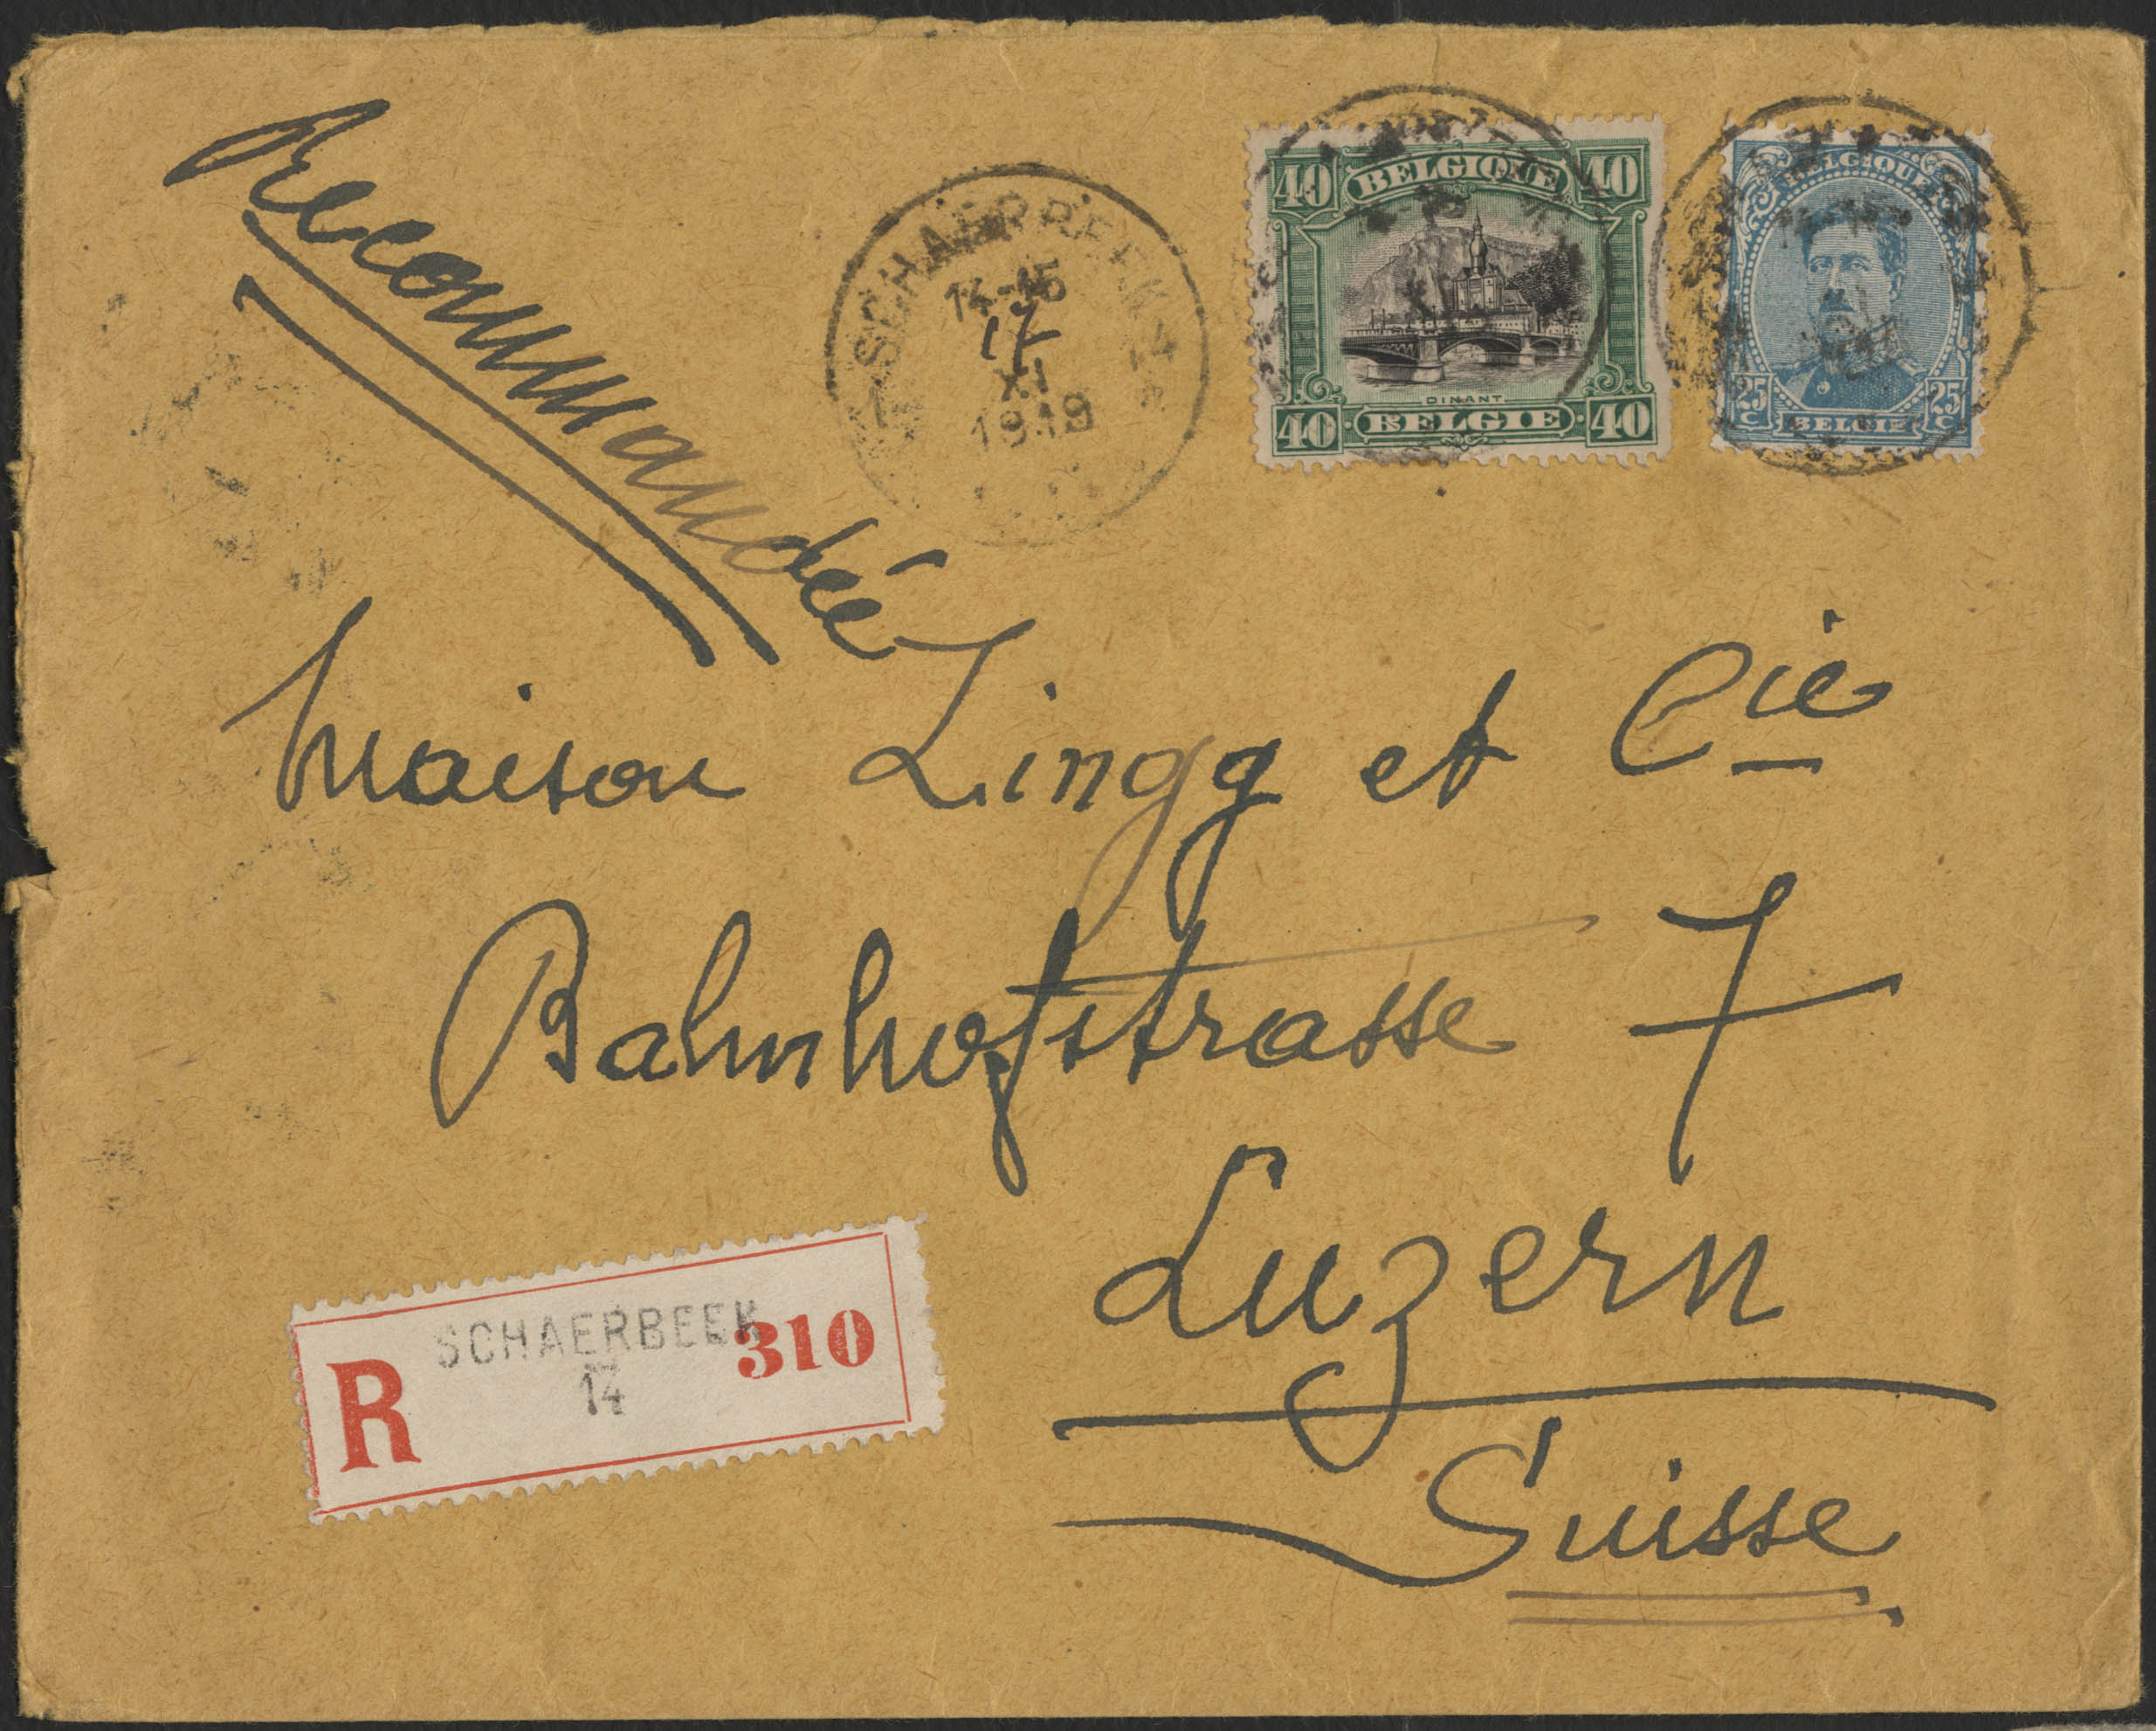 Recommandée
SCHAERBEEK 14
14-15
17
XI
1919
40 BELGIQUE 40
DINANT
40 BELGIE 40
BELGIQUE
25 C BELGIE 25 C
Maison Lingg et Cie
Bahnhofstrasse 7
Luzern
Suisse
R SCHAERBEEK 310
14